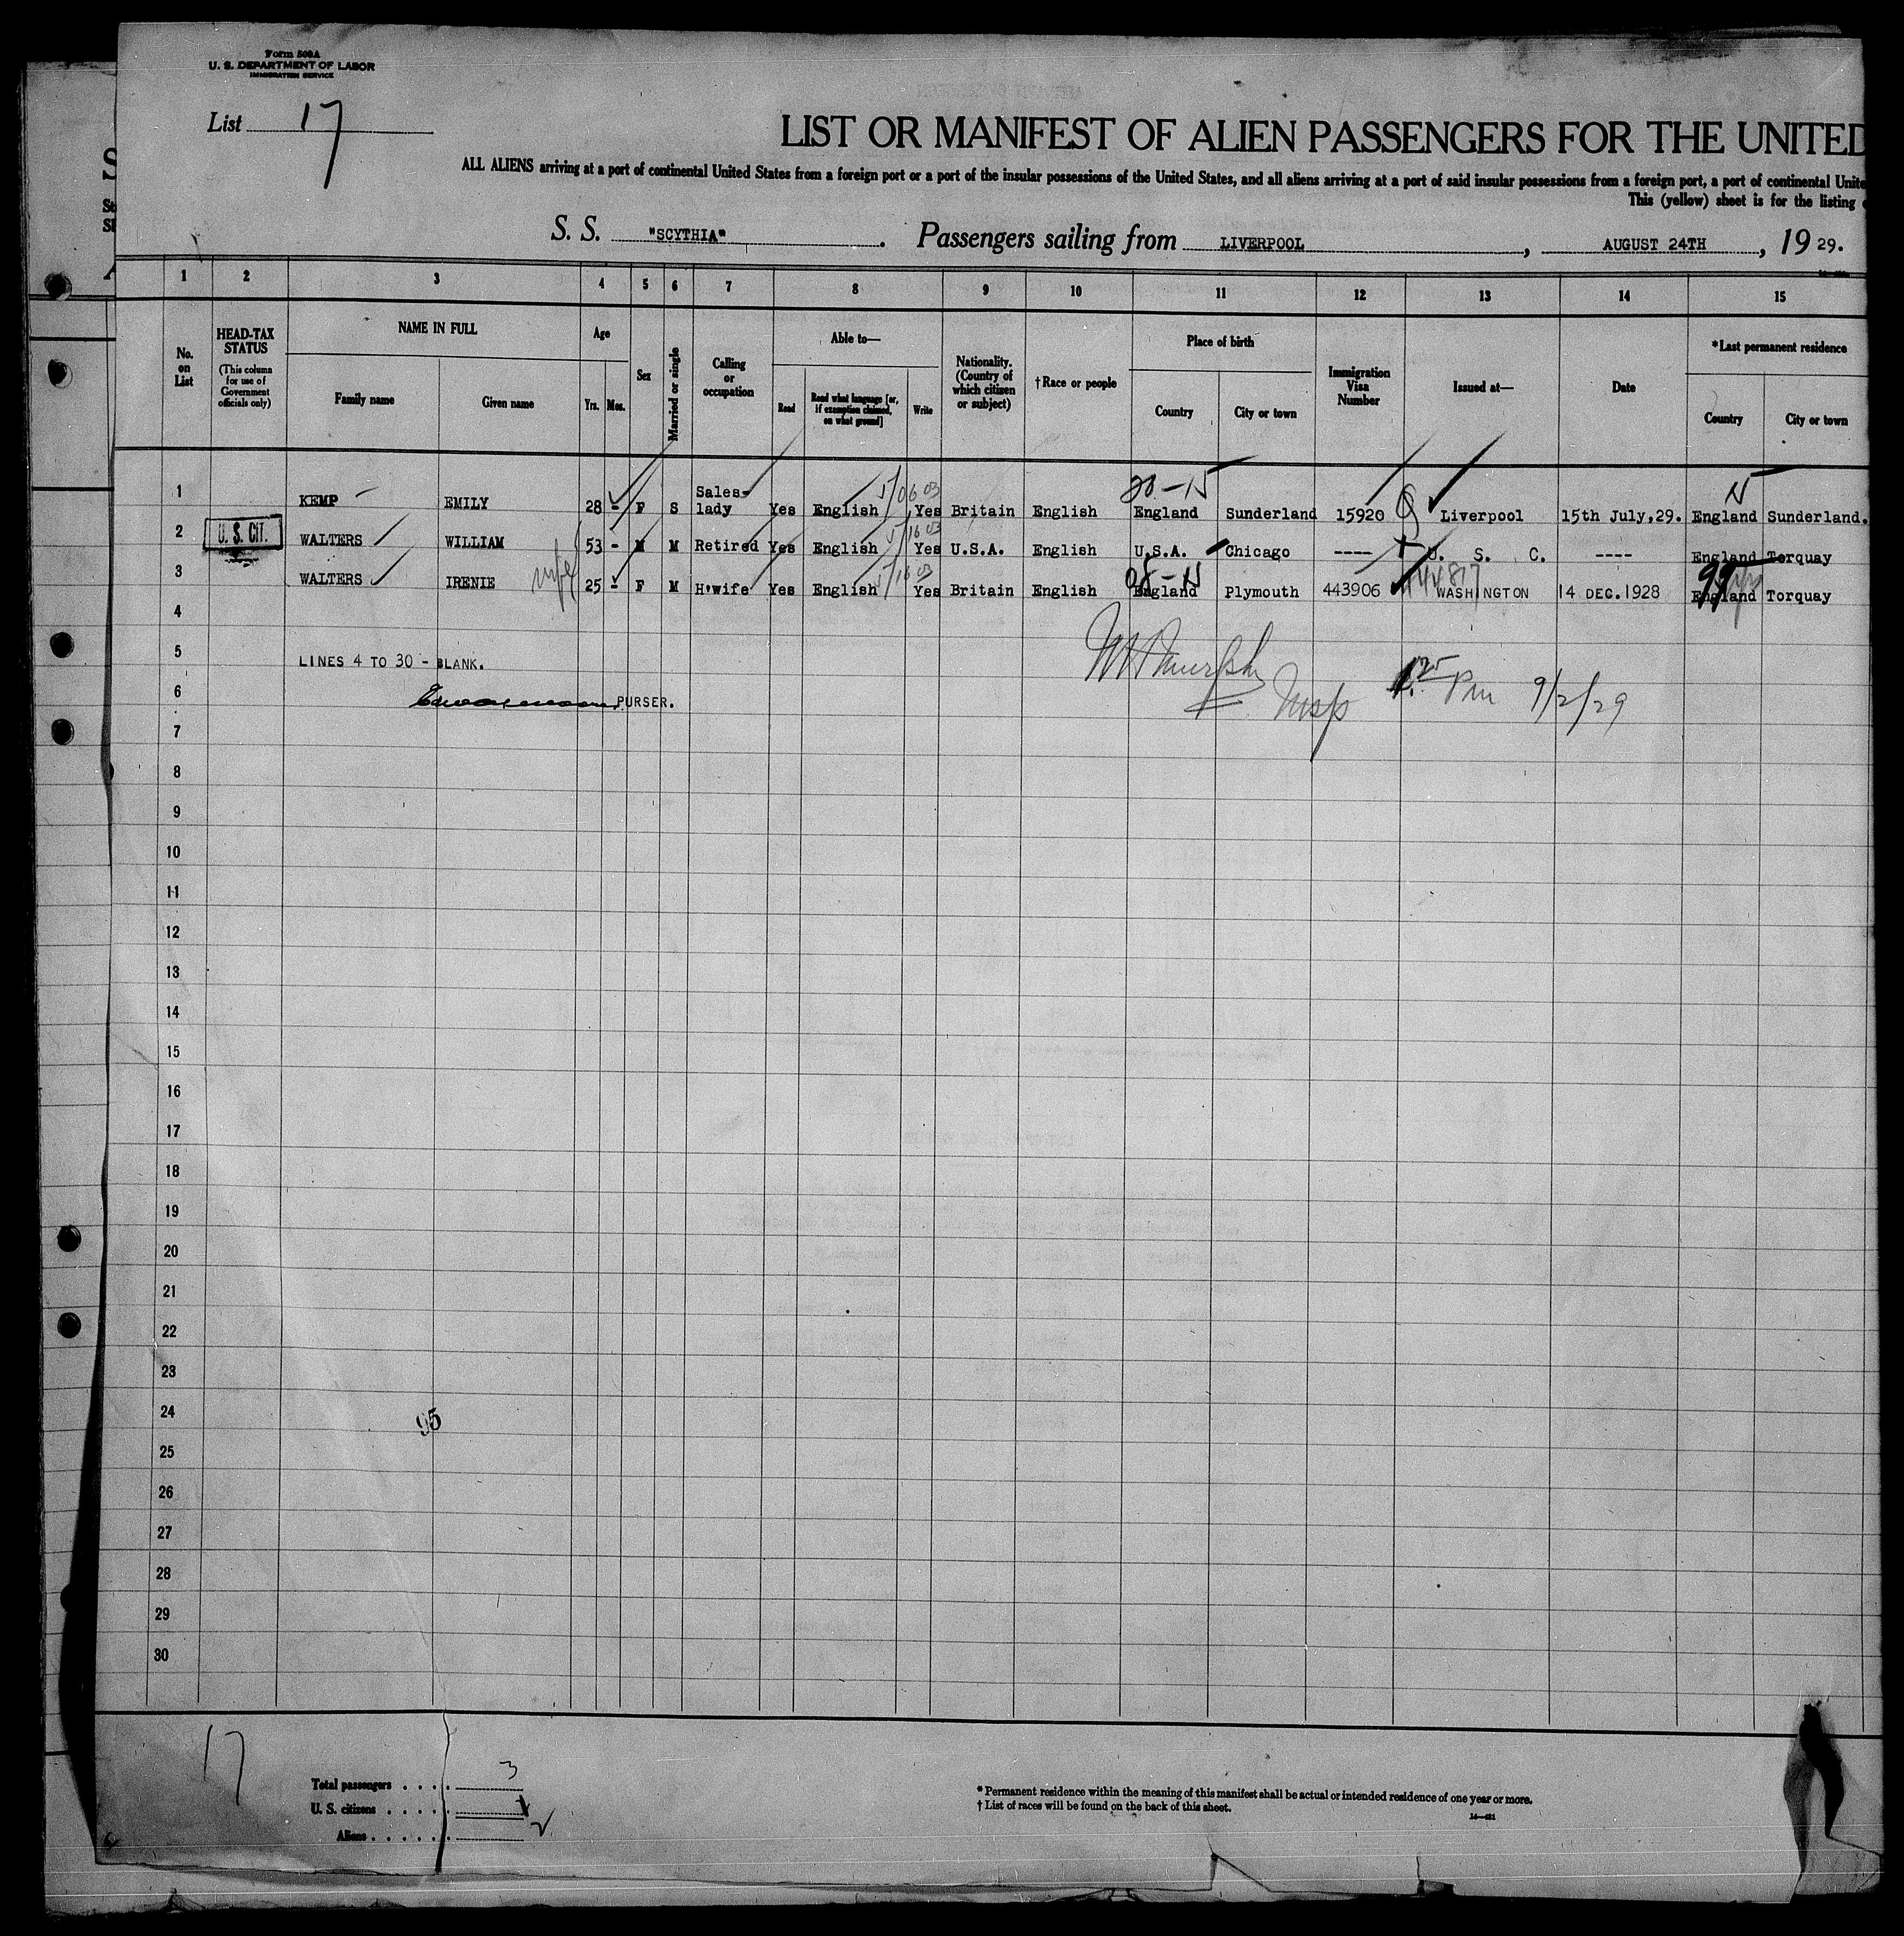 Form 500A
U. S. DEPARTMENT OF LABOR
IMMIGRATION SERVICE
List 17
LIST OR MANIFEST OF ALIEN PASSENGERS FOR THE UNITED
ALL ALIENS arriving at a port of continental United States from a foreign port or a port of the insular possessions of the United States, and all aliens arriving at a port of said insular possessions from a foreign port, a port of continental Unite
This (yellow) sheet is for the listing
S. S. "SCYTHIA". Passengers sailing from LIVERPOOL, AUGUST 24TH, 19 29.
1 2 3 4 5 6 7 8 9 10 11 12 13 14 15
No. on List
HEAD-TAX STATUS
(This column for use of Government officials only)
NAME IN FULL
Family name Given name
Age
Yrs. Mos.
Sex
Married or single
Calling or occupation
Able to—
Read Read what language [or, if exemption claimed, on what ground] Write
Nationality. (Country of which citizen or subject)
† Race or people
Place of birth
Country City or town
Immigration Visa Number
Issued at—
Date
*Last permanent residence
Country City or town
1 KEMP EMILY 28 - F S Sales-lady Yes English Yes Britain English England Sunderland 15920 Liverpool 15th July,29. England Sunderland.
2 U. S. CIT. WALTERS WILLIAM 53 - M M Retired Yes English Yes U.S.A. English U.S.A. Chicago ---- U. S. C. ---- England Torquay
3 WALTERS IRENIE wife 25 - F M H'wife Yes English Yes Britain English England Plymouth 443906 WASHINGTON 14 DEC.1928 England Torquay
4
5 LINES 4 TO 30 - BLANK.
6 PURSER.
Insp 1.25 Pm 9/2/29
7
8
9
10
11
12
13
14
15
16
17
18
19
20
21
22
23
24
95
25
26
27
28
29
30
17
Total passengers . . . . 3
U. S. citizens . . . . .
Aliens . . . . . .
* Permanent residence within the meaning of this manifest shall be actual or intended residence of one year or more.
† List of races will be found on the back of this sheet.